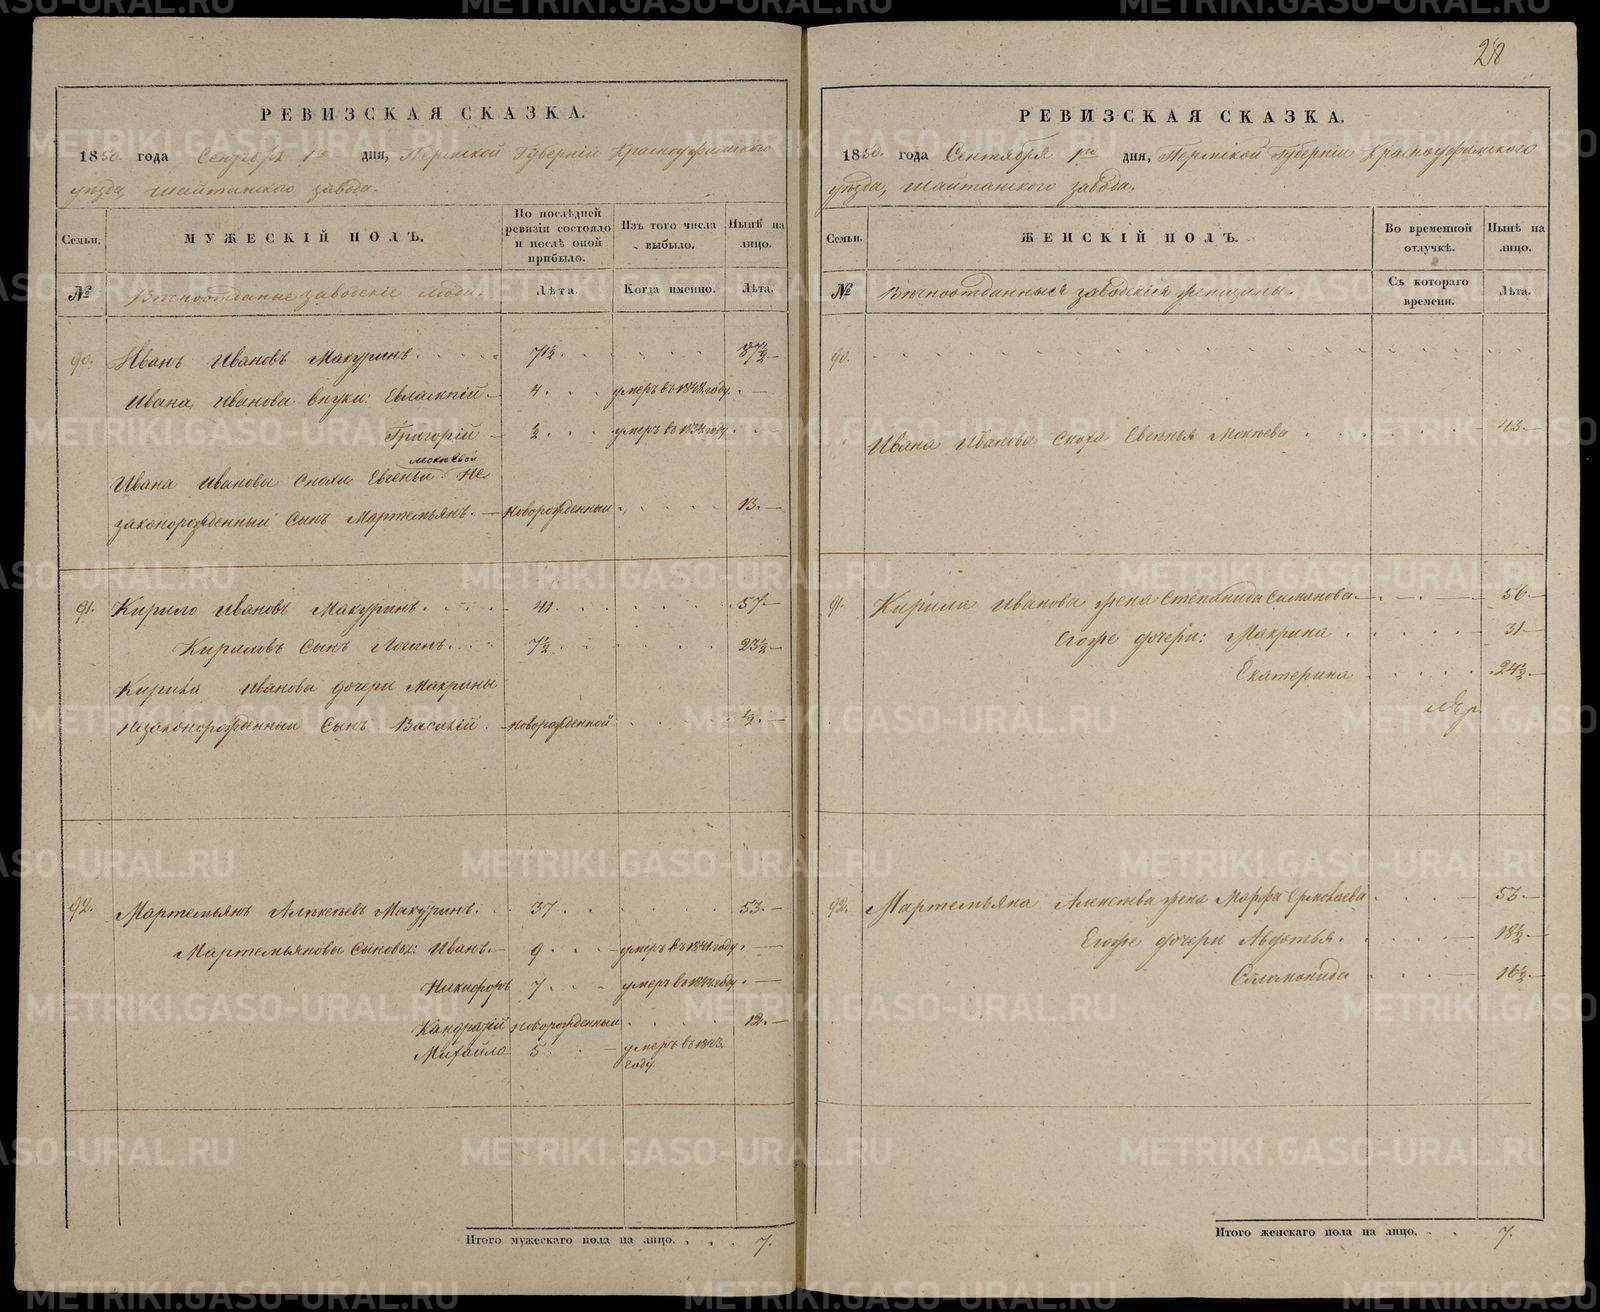 28
РЕВИЗСКАЯ СКАЗКА.
1850. года Сентября 1го дня, Пермской Губерніи Красноуфимского
уѣзда, Шайтанского завода.
Семьи.
МУЖЕСКІЙ ПОЛЪ.
По послѣдней ревизіи состояло и послѣ оной прибыло.
Изъ того числа выбыло.
Нынѣ на лицо.
№
Вѣчноотданные заводскіе люди.
Лѣта.
Когда именно.
Лѣта.
90. Иванъ Ивановъ Макуринъ. 71½. 87½
Ивана Иванова внуки: Евлампій 4. умеръ въ 1848 году.
Григорій 2. умеръ въ 1834 году
Мокѣевой
Ивана Иванова снохи Евгеньи Не
законорожденный сынъ Мартемьянъ. Новорожденный 13.
91. Кирило Ивановъ Макуринъ. 41. 57
Кириловъ сынъ Логинъ. 7½. 23½
Кирила Иванова дочери Макрины
незаконорожденный сынъ Василій. новорожденной ½.
92. Мартемьянъ Алексѣевъ Макуринъ. 37. 53.
Мартемьяновы сыновья: Иванъ. 9. умеръ въ 1841 году.
Никифоръ 7. умеръ въ году.
Кандратій новорожденный 12.
Михайло 5. умеръ въ 1843.
году.
Итого мужескаго пола на лицо. 7.
РЕВИЗСКАЯ СКАЗКА.
1850. года Сентября 1го дня, Пермской Губерніи Красноуфимского
уѣзда, Шайтанского завода.
Семьи.
ЖЕНСКІЙ ПОЛЪ.
Во временной отлучкѣ.
Нынѣ на лицо.
№
Вѣчноотданныя заводскія женщины.
Съ котораго времени.
Лѣта.
90.
Ивана Иванова сноха Евгенья Мокѣева 43
91. Кирила Иванова жена Степанида Симанова 56
Егоже дочери: Макрина 31
Екатерина 24½
92. Мартемьяна Алексѣева жена Марфа Ермолаева 53
Егоже дочери Авдотья. 18½
Соломонида 16½
Итого женскаго пола на лицо. 7.
METRIKI.GASO-URAL.RU